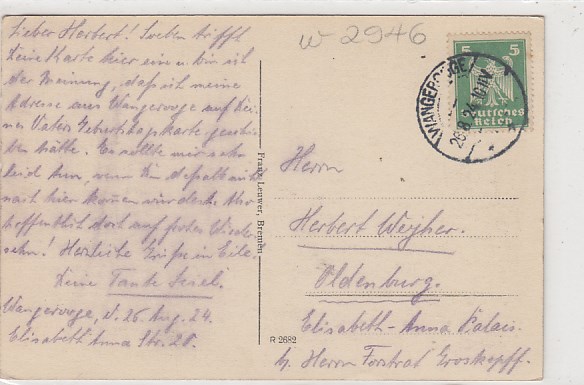 Lieber Herbert! Soeben trifft
Deine Karte hier ein u. bin ich
der Meinung, daß ich meine
Adresse aus Wangerooge auf Dei-
nes Vaters Geburtstagskarte geschrie-
ben hätte. Es sollte mir sehr
leid tun, wenn Du
nach hier kommen würdest. Also
hoffentlich doch auf frohes Wieder-
sehn! Herzliche Grüße in Eile.
Deine Tante
Wangerooge, d. 26. Aug. 24.
Elisabeth Anna Str. 28.
Franz Leuwer, Bremen
R 2682
w 2946
5 5
Deutsches
Reich
WANGEROOGE
26.8.24
Herrn
Herbert Weyher.
Oldenburg.
Elisabeth-Anna Palais.
Herrn Forstrat Groskopff.